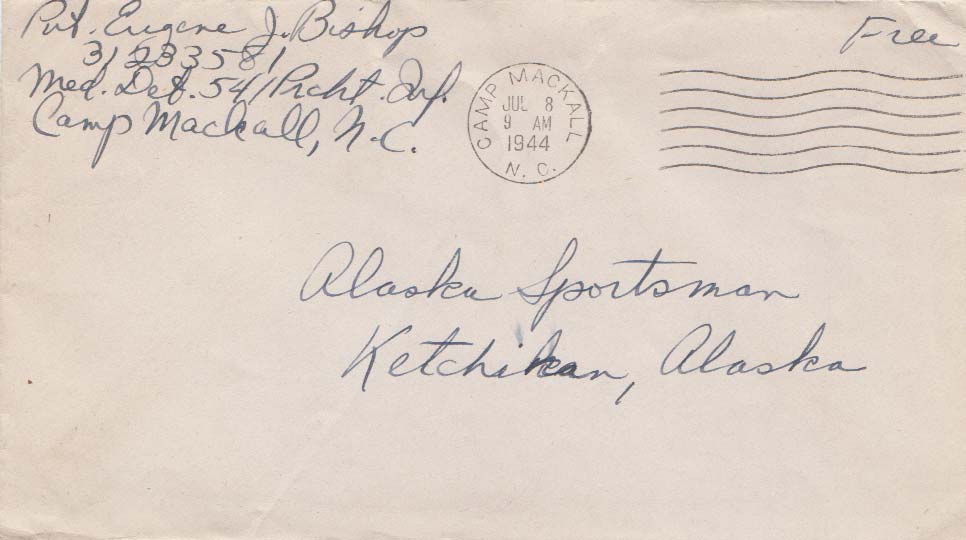 Pvt. Eugene J. Bishop
31233581
Med. Det. 541 Prcht. Inf.
Camp Mackall, N.C.
Free
CAMP MACKALL
JUL 8
9 AM
1944
N. C.
Alaska Sportsman
Ketchikan, Alaska